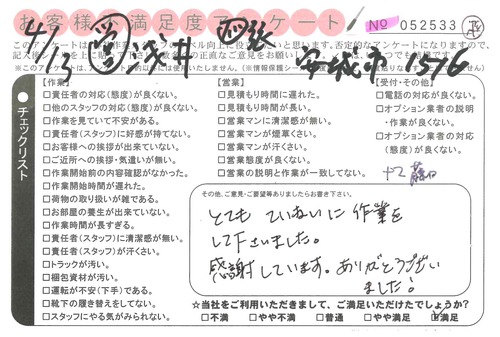 お客様不満足度アンケート
No 052533
4/13 浅井 安城市
このアンケートは
【作業】
□責任者の対応(態度)が良くない。
□他のスタッフの対応(態度)が良くない。
□作業を見ていて不安がある。
□責任者(スタッフ)に好感が持てない。
□お客様への挨拶が出来ていない。
□ご近所への挨拶・気遣いが無い。
□作業開始前の内容確認がなかった。
□作業開始時間が遅れた。
□荷物の取り扱いが雑である。
□お部屋の養生が出来ていない。
□作業時間が長すぎる。
□責任者(スタッフ)に清潔感が無い。
□責任者(スタッフ)が汗くさい。
□トラックが汚い。
□梱包資材が汚い。
□運転が不安(下手)である。
□靴下の履き替えをしてない。
□スタッフにやる気がみられない。
【営業】
□見積もり時間に遅れた。
□見積もり時間が長い。
□営業マンに清潔感が無い。
□営業マンが煙草くさい。
□営業マンが汗くさい。
□営業態度が良くない。
□営業の説明と作業が一致してない。
【受付・その他】
□電話の対応が良くない。
□オプション業者の説明
・作業が良くない。
□オプション業者の対応
(態度)が良くない。
チェックリスト
その他、ご意見・ご要望等ありましたらお書き下さい。
とても ていねいに 作業を
して下さいました。
感謝しています。ありがとうござい
ました!
☆当社をご利用いただきまして、ご満足いただけたでしょうか?
□不満 □やや不満 □普通 □やや満足 ☑満足